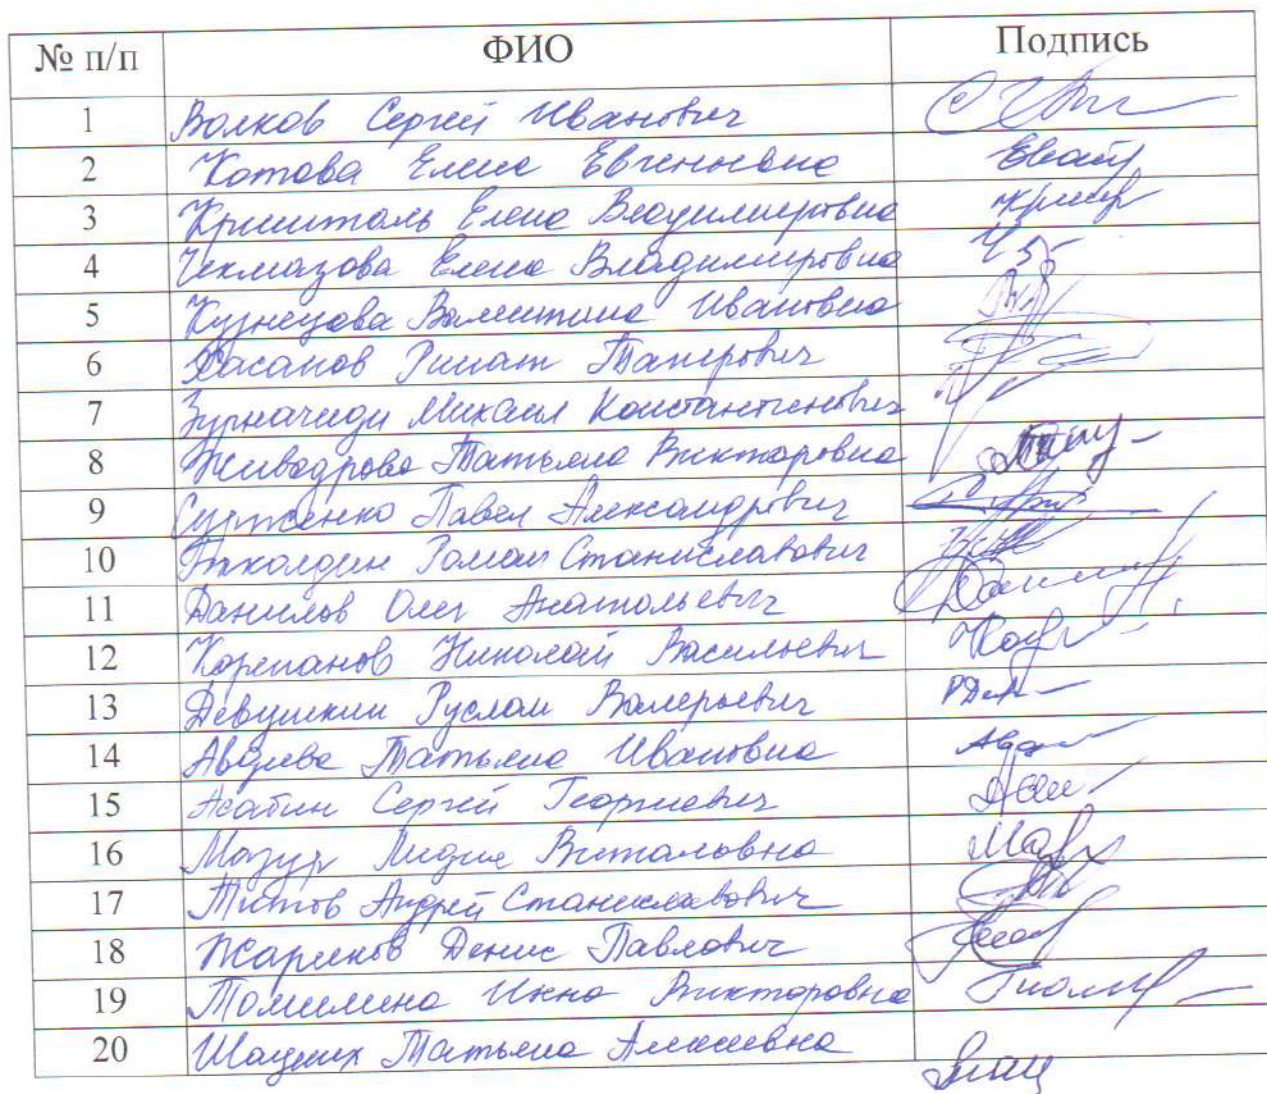 № п/п ФИО Подпись
1 Волков Сергей Иванович
2 Котова Елена Евгеньевна
3 Кришталь Елена Владимировна
4 Чекмазова Елена Владимировна
5 Кузнецова Валентина Ивановна
6 Хасанов Ринат Тагирович
7 Зурначиди Михаил Константинович
8 Живодрова Татьяна Викторовна
9 Сурженко Павел Александрович
10 Роман Станиславович
11 Данилов Олег Анатольевич
12 Корепанов Николай Васильевич
13 Девушкин Руслан Валерьевич
14 Авдеева Татьяна Ивановна
15 Асабин Сергей Георгиевич
16 Мазур Лидия Витальовна
17 Титов Андрей Станиславович
18 Жариков Денис Павлович
19 Томилина Инна Викторовна
20 Шацких Татьяна Алексеевна